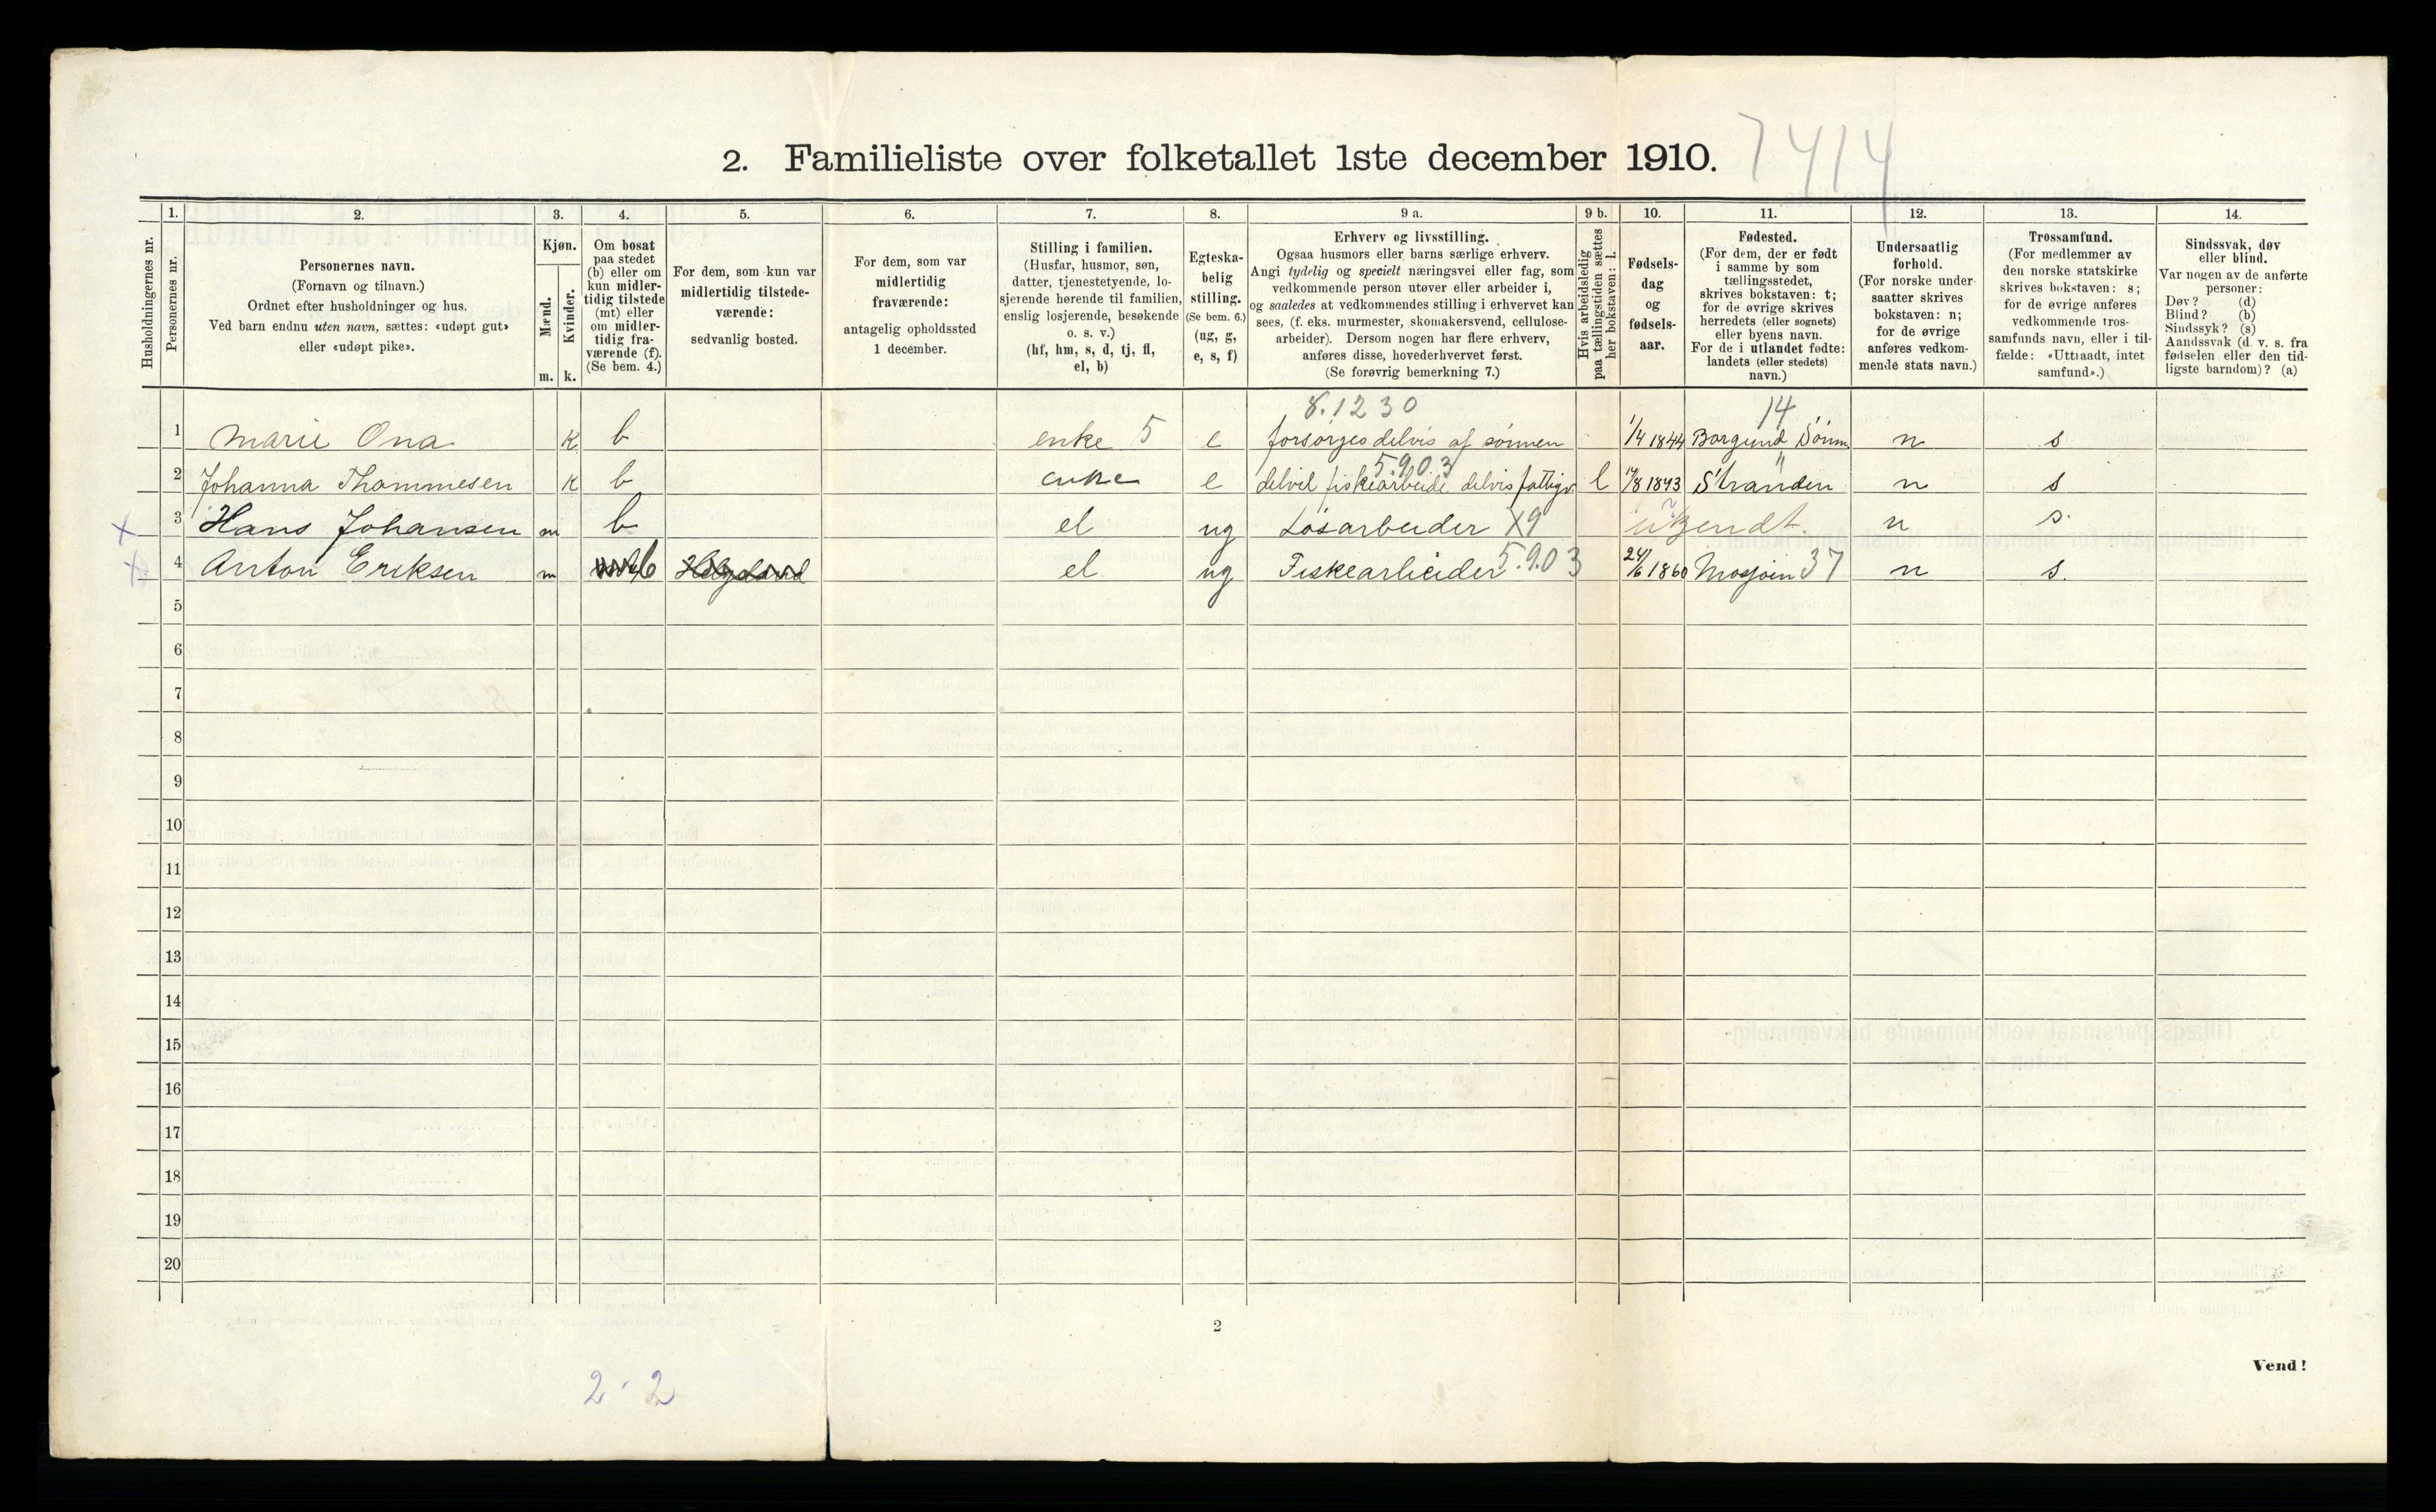 7414
2. Familieliste over folketallet 1ste december 1910.
Husholdningernes nr.
1.
Personernes nr.
2.
Personernes navn.
(Fornavn og tilnavn.)
Ordnet efter husholdninger og hus.
Ved barn endnu uten navn, sættes: «udøpt gut»
eller «udøpt pike».
3.
Kjøn.
Mænd.
Kvinder.
m. k.
4.
Om bosat
paa stedet
(b) eller om
kun midler-
tidig tilstede
(mt) eller
om midler-
tidig fra-
værende (f).
(Se bem. 4.)
5.
For dem, som kun var
midlertidig tilstede-
værende:
sedvanlig bosted.
6.
For dem, som var
midlertidig
fraværende:
antagelig opholdssted
1 december.
7.
Stilling i familien.
(Husfar, husmor, søn,
datter, tjenestetyende, lo-
sjerende hørende til familien,
enslig losjerende, besøkende
o. s. v.)
(hf, hm, s, d, tj, fl,
el, b)
8.
Egteska-
belig
stilling.
(Se bem. 6.)
(ug, g,
e, s, f)
9 a.
Erhverv og livsstilling.
Ogsaa husmors eller barns særlige erhverv.
Angi tydelig og specielt næringsvei eller fag, som
vedkommende person utøver eller arbeider i,
og saaledes at vedkommendes stilling i erhvervet kan
sees, (f. eks. murmester, skomakersvend, cellulose-
arbeider). Dersom nogen har flere erhverv,
anføres disse, hovederhvervet først.
(Se forøvrig bemerkning 7.)
9 b.
Hvis arbeidsledig
paa tællingstiden sættes
her bokstaven: l.
10.
Fødsels-
dag
og
fødsels-
aar.
11.
Fødested.
(For dem, der er født
i samme by som
tællingsstedet,
skrives bokstaven: t;
for de øvrige skrives
herredets (eller sognets)
eller byens navn.
For de i utlandet fødte:
landets (eller stedets)
navn.)
12.
Undersaatlig
forhold.
(For norske under-
saatter skrives
bokstaven: n;
for de øvrige
anføres vedkom-
mende stats navn.)
13.
Trossamfund.
(For medlemmer av
den norske statskirke
skrives bokstaven: s;
for de øvrige anføres
vedkommende tros-
samfunds navn, eller i til-
fælde: «Uttraadt, intet
samfund».)
14.
Sindssvak, døv
eller blind.
Var nogen av de anførte
personer:
Døv? (d)
Blind? (b)
Sindssyk? (s)
Aandssvak (d. v. s. fra
fødselen eller den tid-
ligste barndom)? (a)
8.1230 14
1 Marie Ona k b enke 5 e forsørges delvis af sønnen 1/4 1844 Borgund Sønm. n s
5.903 "
2 Johanna Thommesen k b enke e delvil fiskearbeide delvis fattigv. l 1843 Stranden n s
x 3 Hans Johansen m b el ug Løsarbeider X9 ukjendt n s.
x 4 Anton Eriksen m b Helgeland el ug Fiskearbeider 5.903 24/6 1860 Mosjøen 37 n s.
5
6
7
8
9
10
11
12
13
14
15
16
17
18
19
20
2
Vend!
2 - 2